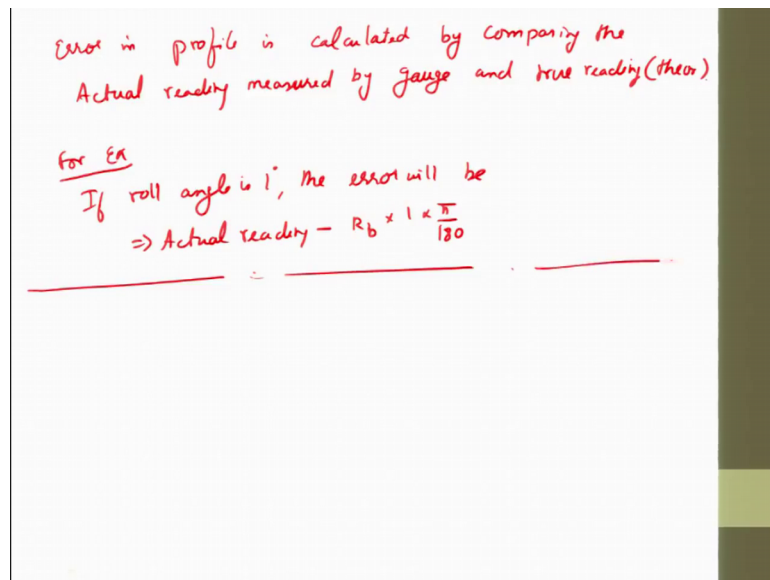 Error in profile is calculated by comparing the
Actual reading measured by gauge and true reading (theor)
For Ex
If roll angle is 1°, the error will be
⇒ Actual reading - Rb × 1 × π/180